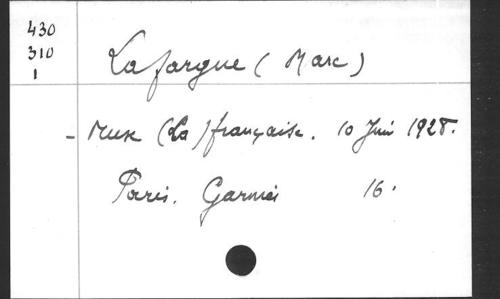 430
310
1
Lafargue (Marc)
- Muse (La) française. 10 Juin 1928.
Paris. Garnier 16.